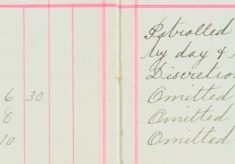 Patrolled
by day &
Discretion
6 30 Omitted
8 Omitted
10 Omitted